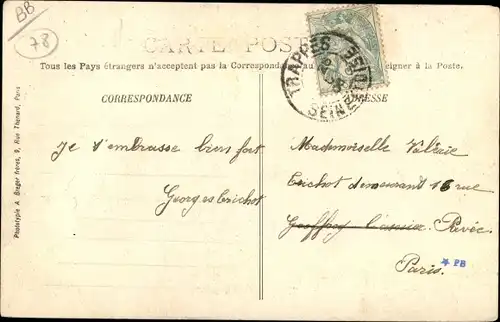 BB
78
CARTE POSTALE
Tous les Pays étrangers n'acceptent pas la Correspondance au
seigner à la Poste.
TRAPPES
SEINE
OISE
CORRESPONDANCE
ADRESSE
Je t'embrasse bien fort
Georges Crichot
Mademoiselle Valérie
Crichot demeurant 18 rue
Geoffroy
Paris.
* PB
Phototypie A. Breger frères, 9, Rue Thénard, Paris